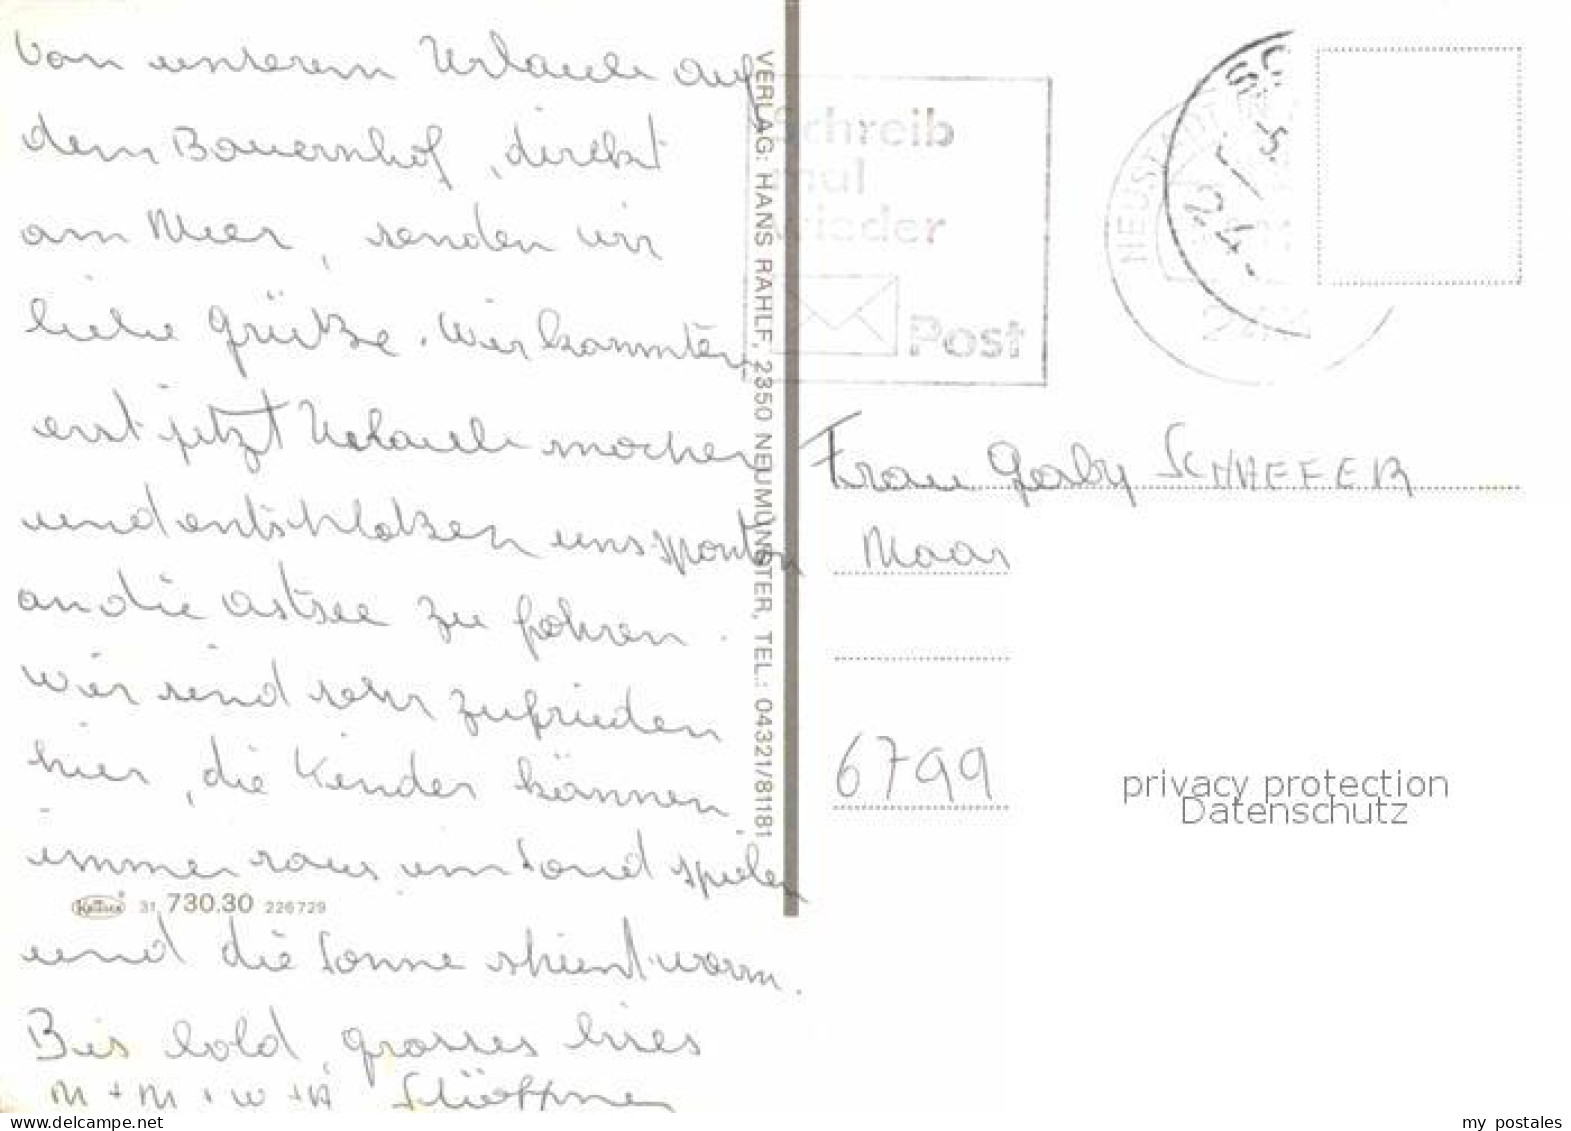 Von unserem Urlaub auf
dem Bauernhof, direkt
am Meer, senden wir
liebe Grütze. Wir konnten
erst jetzt Urlaub machen
und entschloßen uns spontan
an die Ostsee zu fahren.
Wir sind sehr zufrieden
hier, die Kinder können
immer raus im Sand spielen
31 730.30 226729
und die Sonne shient warm.
Bis bald, grosses
M + M + W + A
VERLAG: HANS RAHLF, 2350 NEUMÜNSTER, TEL.: 04321/81181
Schreib
mal
wieder
Post
NEUSTADT
Frau Gaby SCHAEFER
Maar
6799
privacy protection
Datenschutz
www.delcampe.net
my_postales